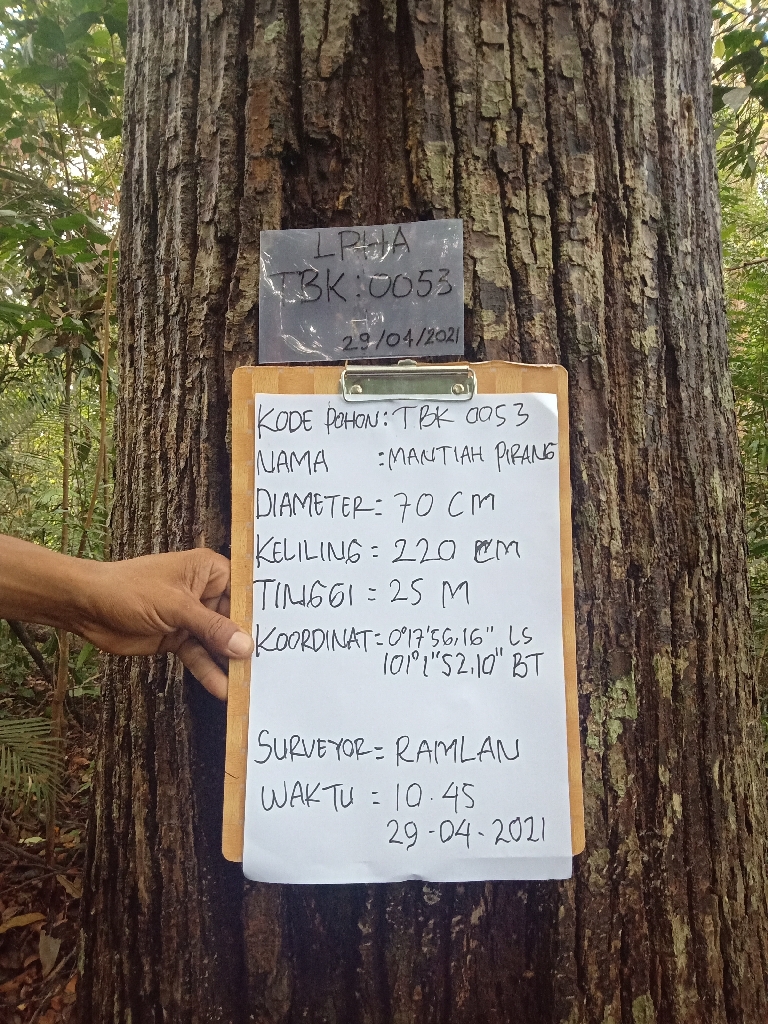 LPHA
TBK: 0053
29/04/2021
KODE POHON: TBK 0053
NAMA : MANTIAH PIRANG
DIAMETER = 70 CM
KELILING = 220 CM
TINGGI = 25 M
KOORDINAT = 0°17'56,16" LS
101°1"52,10" BT
SURVEYOR = RAMLAN
WAKTU = 10.45
29-04-2021